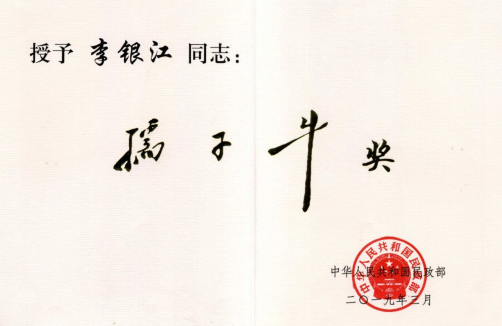 授予 李银江 同志：
孺子牛奖
中华人民共和国民政部
中华人民共和国民政部
二〇一九年三月